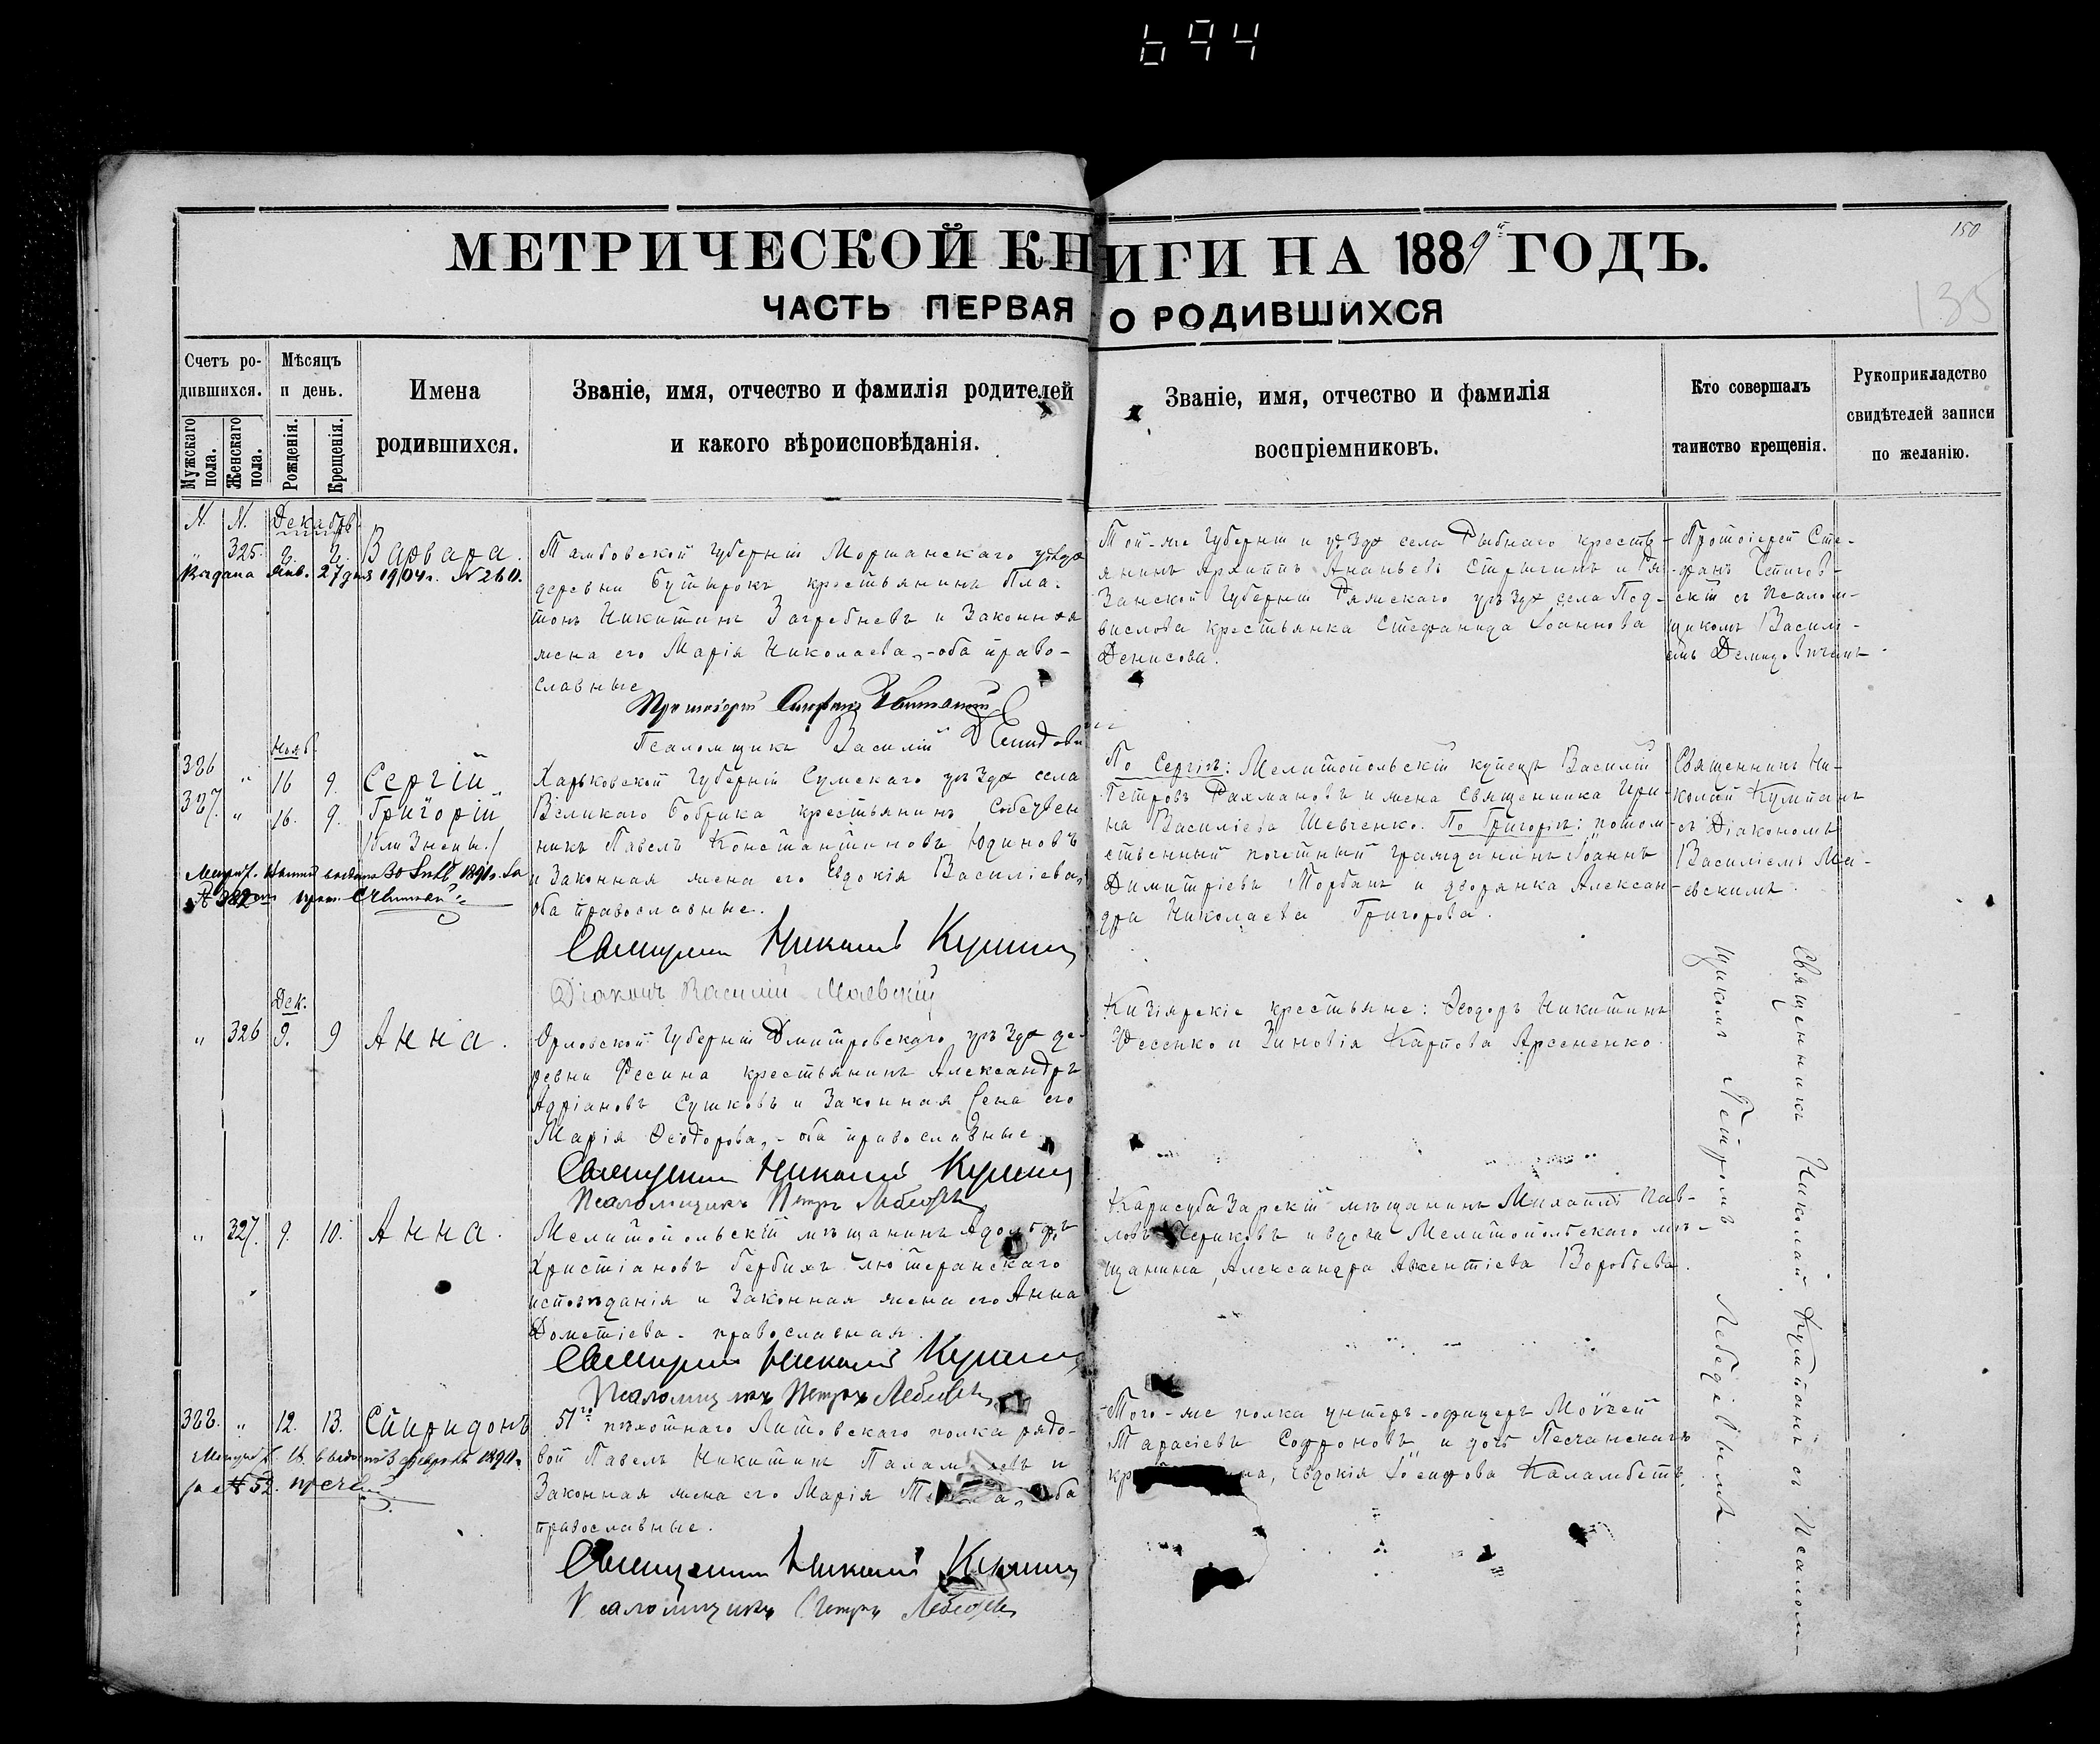 694
150
135
МЕТРИЧЕСКОЙ КНИГИ НА 1889й ГОДЪ.
ЧАСТЬ ПЕРВАЯ О РОДИВШИХСЯ
Счетъ ро-
дившихся.
Мужскаго
пола.
Женскаго
пола.
Мѣсяцъ
и день.
Рожденія.
Крещенія.
Имена
родившихся.
Званіе, имя, отчество и фамилія родителей
и какого вѣроисповѣданія.
Званіе, имя, отчество и фамилія
воспріемниковъ.
Кто совершалъ
таинство крещенія.
Рукоприкладство
свидѣтелей записи
по желанію.
N. N. Декабрь
" 325. Варвара.
Янв. 27 дня 1904 г. N 260.
Тамбовской Губерніи Моршанскаго уѣзда
деревни Бутырокъ крестьянинъ Пла-
тонъ Никитинъ Загребневъ и законная
жена его Марія Николаева,-оба право-
славные
Протоіерей Стефанъ
Псаломщикъ Василій Демидови
Той-же Губерніи и уѣзда села Рыбнаго кресть-
янинъ Архиппъ Ананьевъ Стрыгинъ и Ря-
занской Губерніи Ряжскаго уѣзда села Под-
вислова крестьянка Стефанида Іоаннова
Денисова.
Протоіерей Сте-
фанъ
скій съ Псалом-
щикомъ Василі-
емъ Демидовичемъ
Нояб.
326 " 16 9. Сергій
327. " 16. 9. Григорій
/близнецы./
Харьковской Губерніи Сумскаго уѣзда села
Великаго Бобрика крестьянинъ Собствен
никъ Павелъ Константиновъ Юдиновъ
и законная жена его Евдокія Василіева,
оба православные.
Священникъ Николай
Діаконъ Василій Маевскій
По Сергіѣ: Мелитопольскій купецъ Василій
Петровъ Рахмановъ и жена Священника Ири-
на Василіева Шевченко. По Григоріѣ: потом-
ственный почетный гражданинъ Іоаннъ
Димитріевъ Торбанъ и дворянка Алексан-
дра Николаева Григорова.
Священникъ Ни-
колай
съ Діакономъ
Василіемъ Ма-
евскимъ.
Дек.
" 326 9. 9 Анна.
Орловской Губерніи Дмитровскаго уѣзда де-
ревни Фесина крестьянинъ Александръ
Адріановъ Сушковъ и законная жена его
Марія Ѳеодорова,- оба православные.
Священникъ Николай
Псаломщикъ Петръ Лебедевъ
Кизіярскіе крестьяне: Ѳеодоръ Никитинъ
Фесенко и Зиновія Карпова Арсененко.
" 327. 9. 10. Анна.
Мелитопольскій мѣщанинъ Адольфъ
Христіановъ Гербихъ лютеранскаго
исповѣданія и законная жена его Анна
Дометіева- православная.
Священникъ Николай
Псаломщикъ Петръ Лебедевъ
Карасубазарскій мѣщанинъ Михаилъ Пав-
ловъ и вдова Мелитопольскаго мѣ-
щанина, Александра Авксентіева Воробьева.
328. " 12. 13. Спиридонъ
за N 52.
51го пѣхотнаго Литовскаго полка рядо-
вой Павелъ Никитинъ и
законная жена его Марія оба
православные.
Священникъ Николай
Псаломщикъ Петръ Лебедевъ
Того-же полка унтеръ-офицеръ Моѵсей
Тарасіевъ Софроновъ и дочь Песчанскаго
Евдокія Іосифова Каламбетъ.
Священникъ Николай съ Псалом-
щикомъ Петромъ Лебедевымъ.